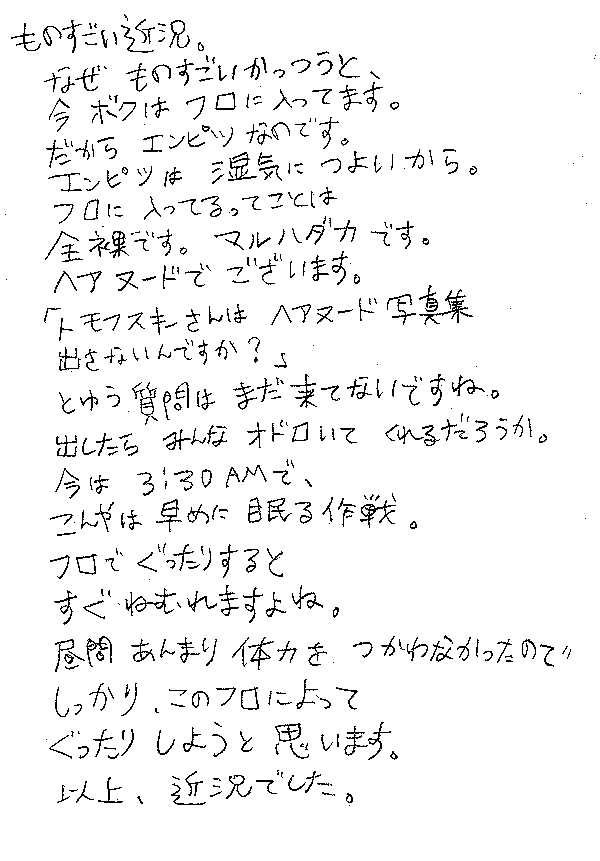 ものすごい近況。
なぜ ものすごいかっつうと、
今 ボクは フロに入ってます。
だから エンピツ なのです。
エンピツは 湿気に つよいから。
フロに 入ってるってことは
全裸です。 マルハダカ です。
ヘアヌードで ございます。
「トモフスキーさんは ヘアヌード 写真集
出さないんですか？」
とゆう 質問は まだ 来てないですね。
出したら みんな オドロいて くれるだろうか。
今は 3:30AMで、
こんやは 早めに 眠る 作戦。
フロで ぐったりすると
すぐ ねむれますよね。
昼間 あんまり 体力を つかわなかったので
しっかり、このフロによって
ぐったり しようと 思います。
以上、近況でした。